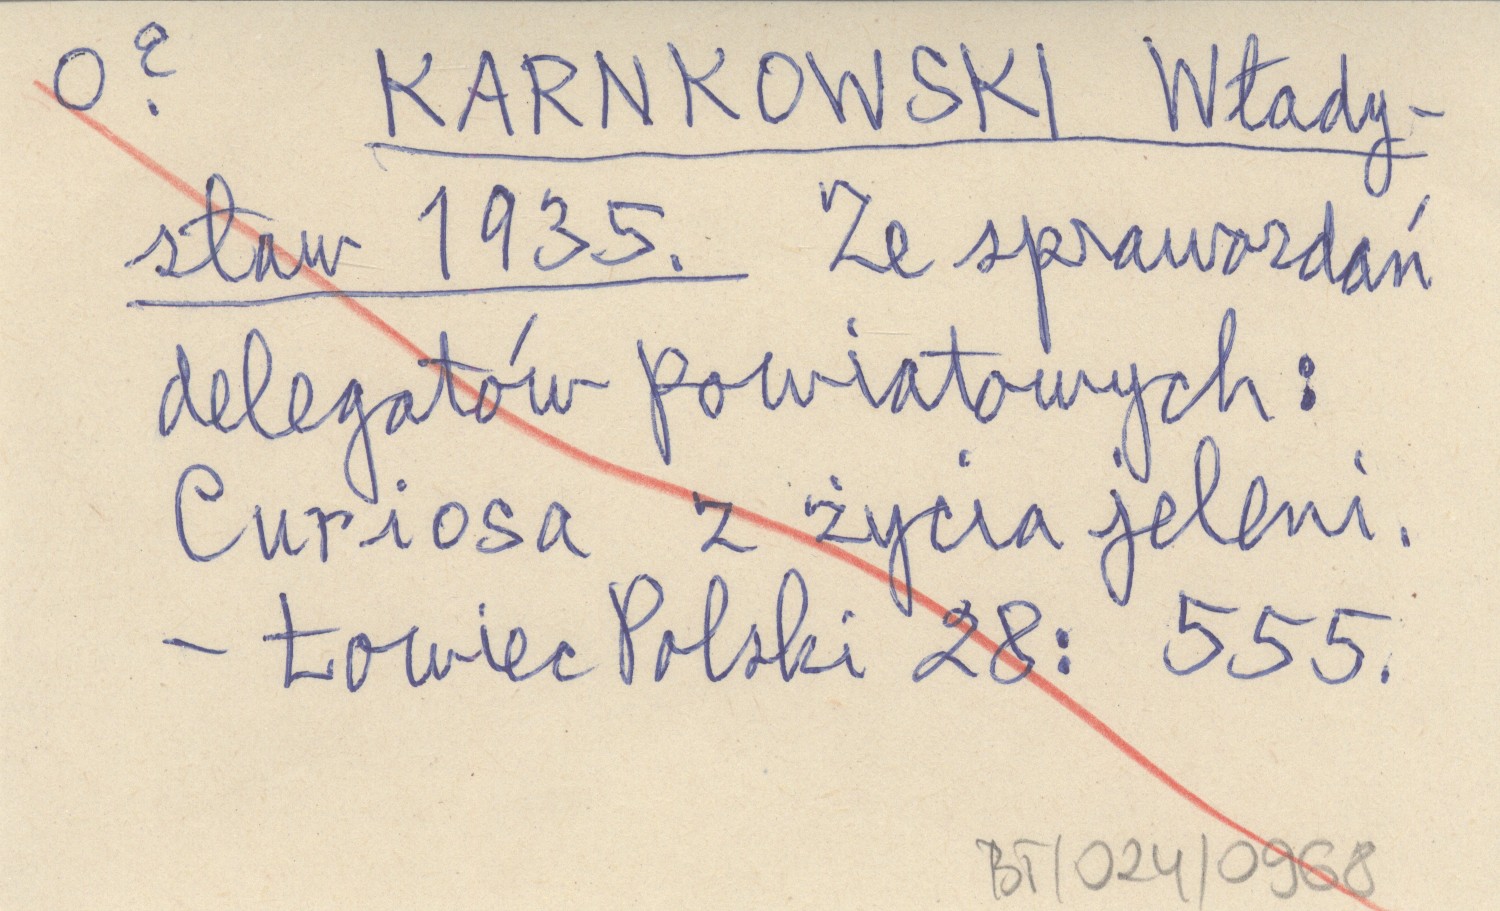 O? KARNKOWSKI Włady-
sław 1935. Ze sprawozdań
delegatów powiatowych:
Curiosa z życia jeleni.
- Łowiec Polski 28: 555.
BT/024/0968